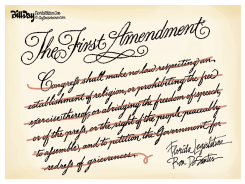 Bill Day
The First Amendment
Congress shall make no law respecting an
establishment of religion, or prohibiting the free
exercise thereof; or abridging the freedom of speech,
or of the press, or the right of the people peaceably
to assemble, and to petition the Government for
redress of grievances.
Florida Legislature
Ron DeSantis